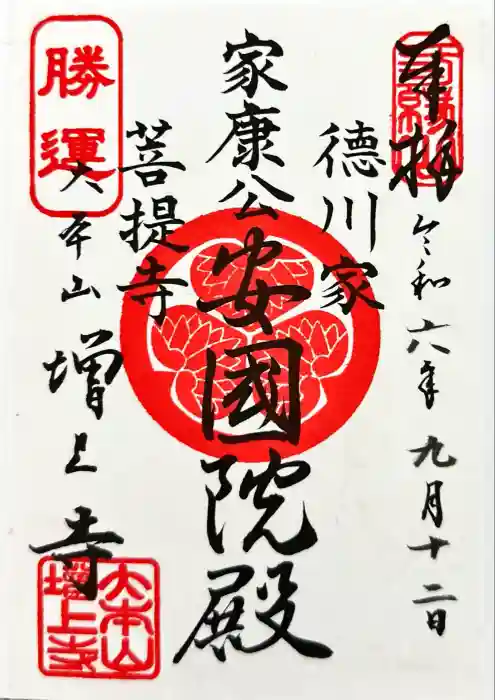 奉拝
令和六年九月十二日
徳川家
家康公
安國院殿
菩提寺
勝運
大本山
増上寺
大本山
増上寺